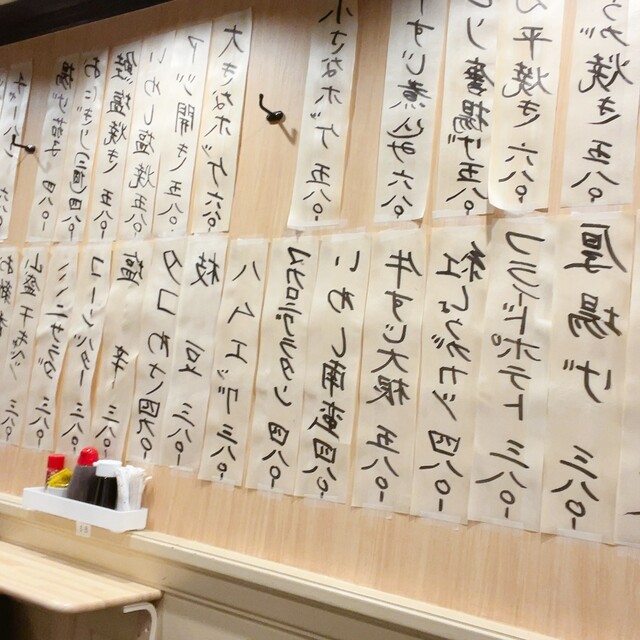 焼き 五八〇-
平焼き 六八〇-
唐揚げ 五八〇-
すじ煮込み 六八〇-
小さなホッケ 五八〇-
大きなホッケ 六八〇-
アジ開き 五八〇-
いわし塩焼 五八〇-
鮭塩焼き 五八〇-
おにぎり(二個) 四八〇-
揚げ茄子 四八〇-
厚揚げ 三八〇-
フライドポテト 三八〇-
紅しょうがカツ 四八〇-
牛すじ大根 五八〇-
いわし南蛮 四八〇-
マカロニグラタン 四八〇-
ハムエッグ 三八〇-
枝豆 三八〇-
タコわさ 四九〇-
塩辛 三八〇-
コーンバター 三八〇-
ミニサラダ 三八〇-
山盛キャベツ 三八〇-